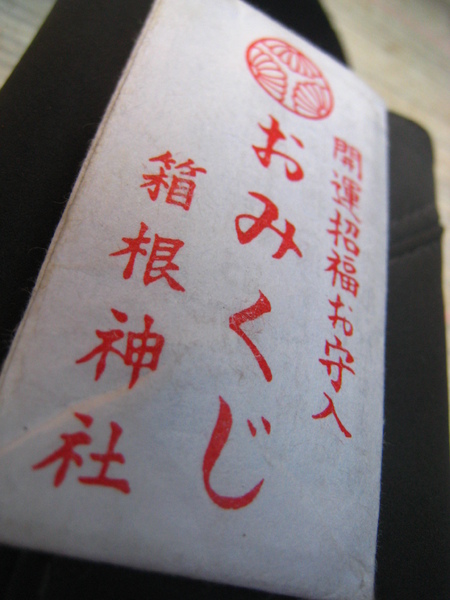 開運招福お守入
おみくじ
箱根神社